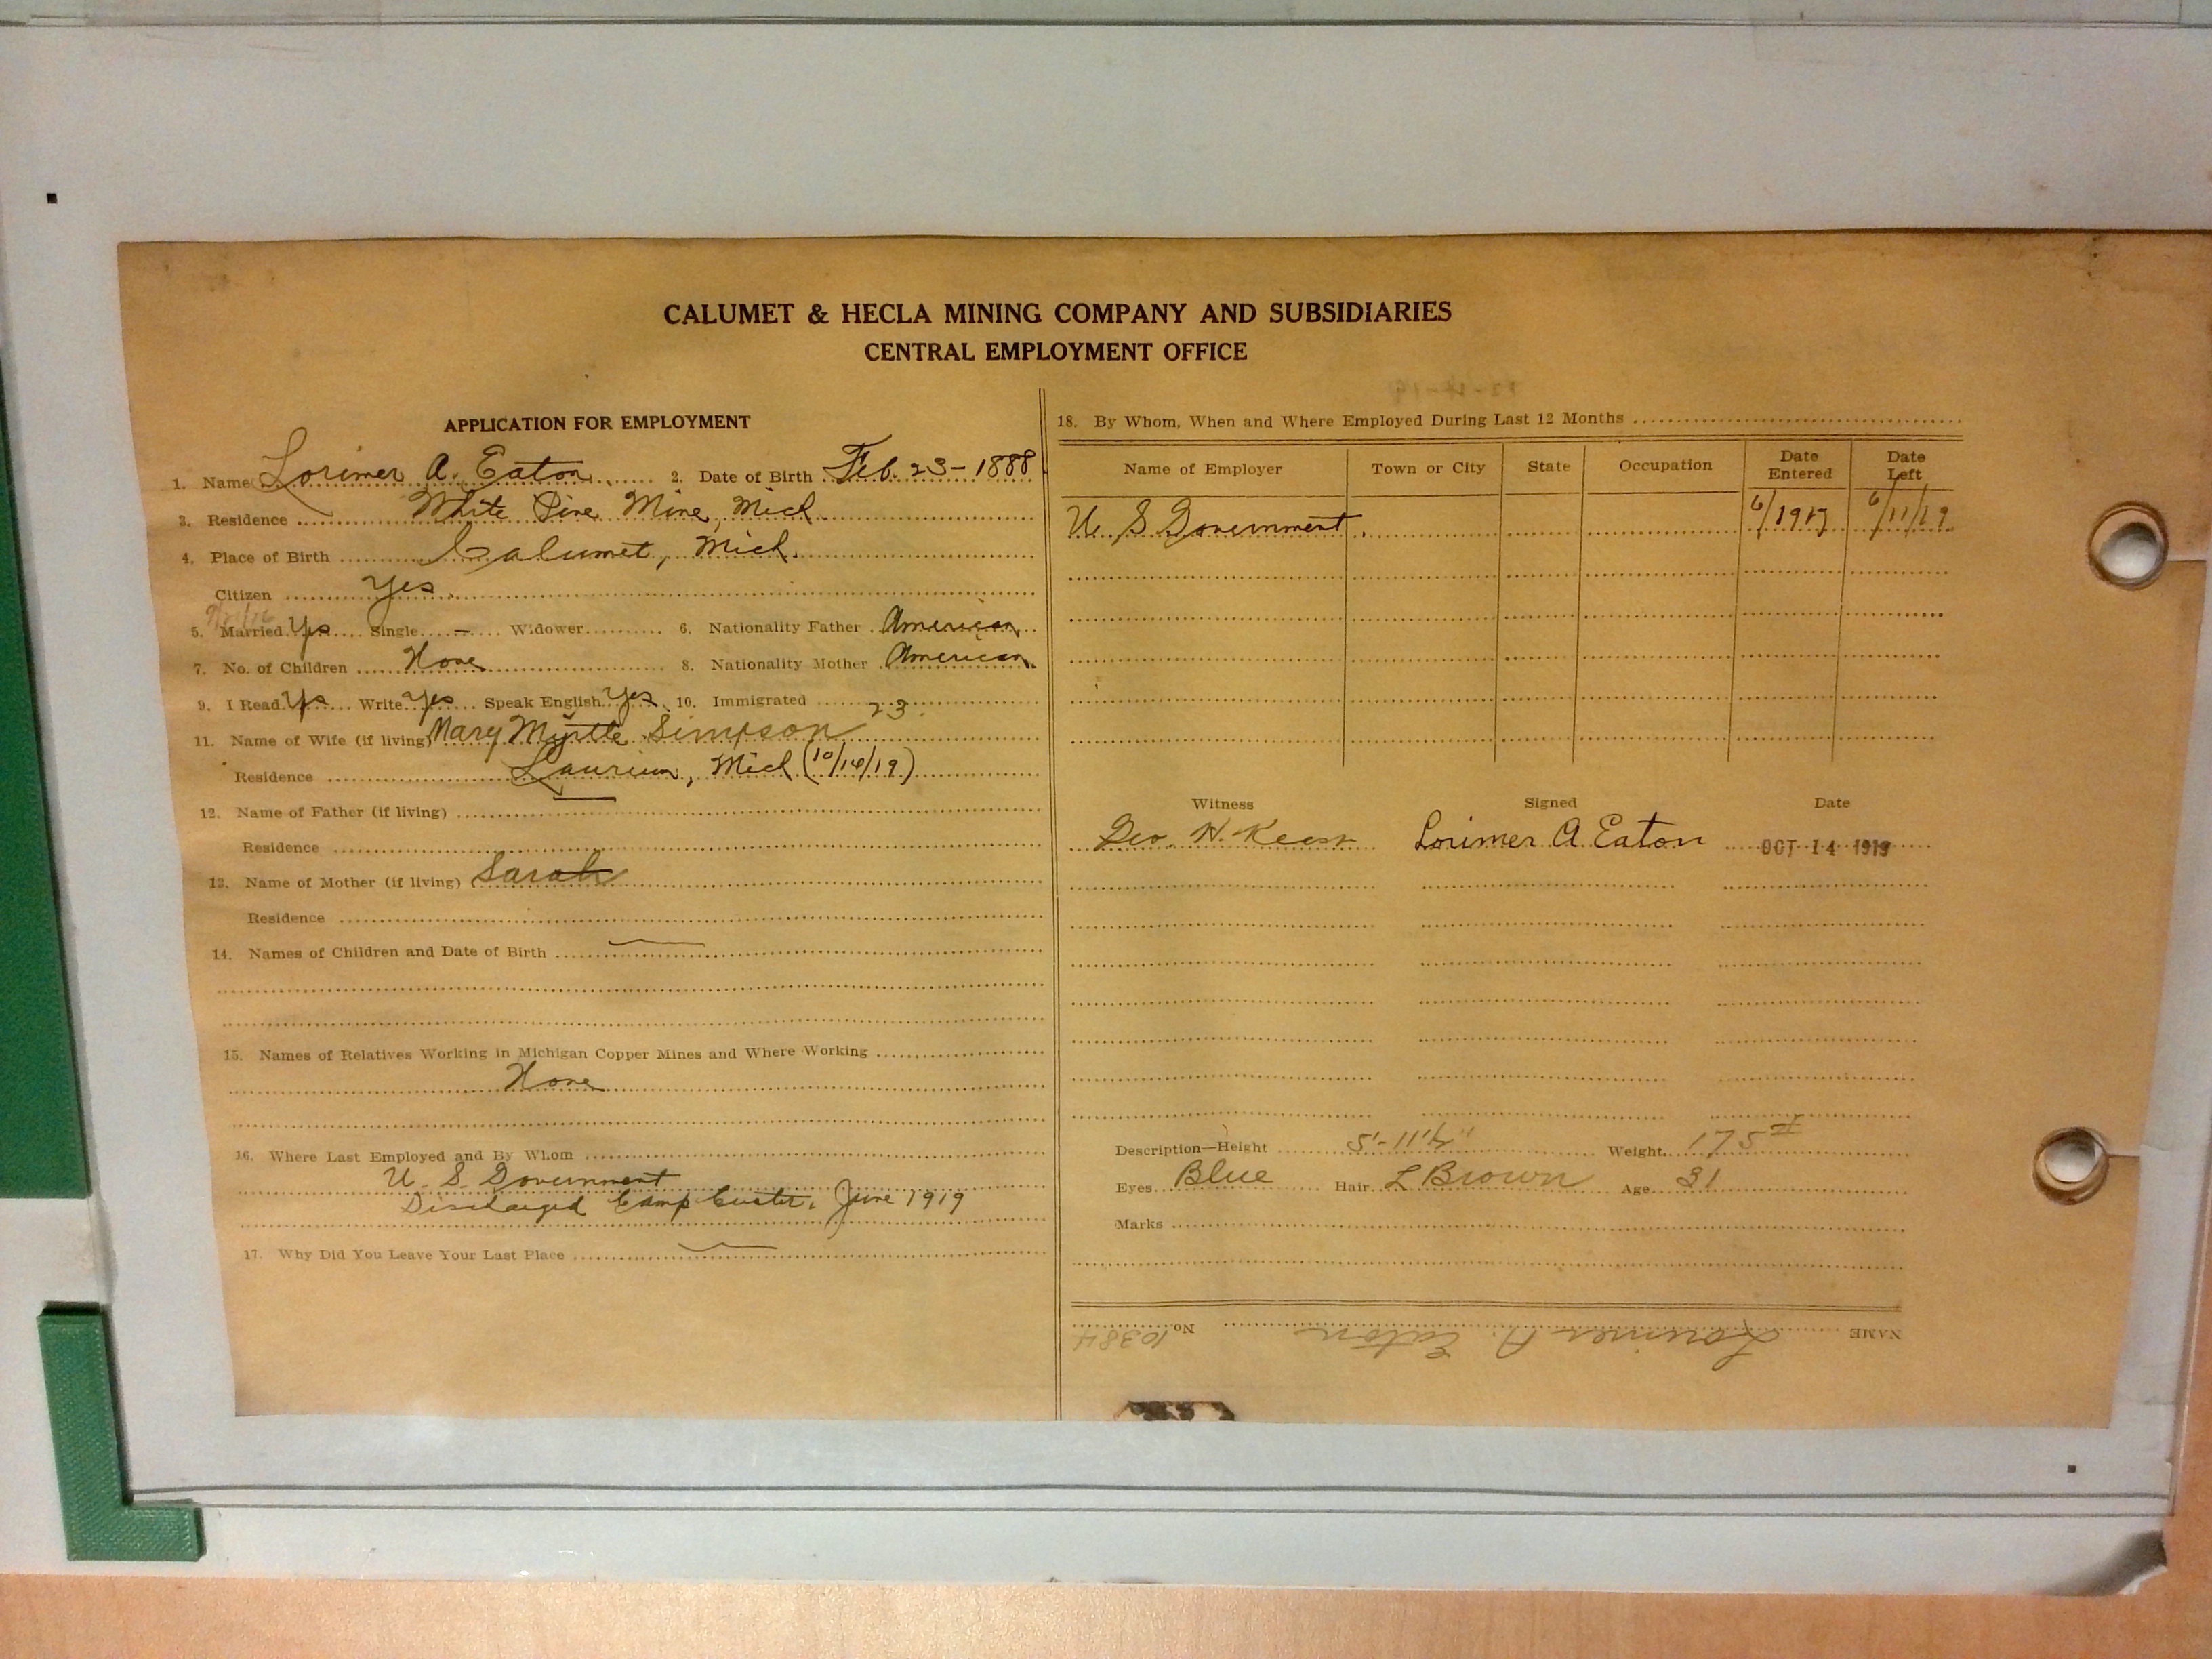 CALUMET & HECLA MINING COMPANY AND SUBSIDIARIES
CENTRAL EMPLOYMENT OFFICE
APPLICATION FOR EMPLOYMENT
1. Name Lorimer A. Eaton 2. Date of Birth Feb. 23-1888
3. Residence White Pine Mine, Mich.
4. Place of Birth Calumet, Mich.
Citizen Yes
5. Married Yes Single - Widower 6. Nationality Father American
7. No. of Children None 8. Nationality Mother American
9. I Read Yes Write Yes Speak English Yes 10. Immigrated
11. Name of Wife (if living) Mary Myrtle Simpson 23
Residence Laurium, Mich (10/14/19)
12. Name of Father (if living)
Residence
13. Name of Mother (if living) Sarah
Residence
14. Names of Children and Date of Birth
15. Names of Relatives Working in Michigan Copper Mines and Where Working
None
16. Where Last Employed and By Whom
U. S. Government
Discharged Camp Custer, June 1919
17. Why Did You Leave Your Last Place
18. By Whom, When and Where Employed During Last 12 Months
Name of Employer Town or City State Occupation Date Entered Date Left
U. S. Government 6/1917 6/11/19
Witness Signed Date
Geo. H. Lorimer A Eaton OCT 14 1919
Description—Height 5'-11½" Weight 175#
Eyes Blue Hair L Brown Age 31
Marks
NAME Lorimer A. Eaton No 10384